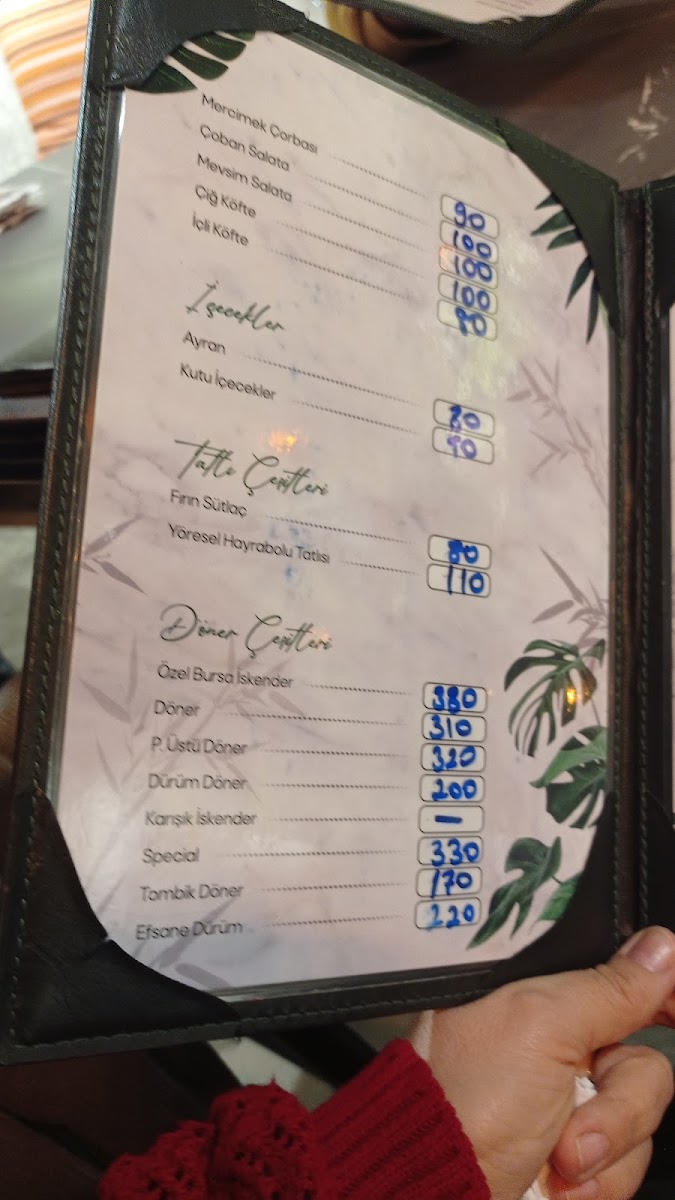 Mercimek Çorbası 90
Çoban Salata 100
Mevsim Salata 100
Çiğ Köfte 100
İçli Köfte 80
İçecekler
Ayran
Kutu İçecekler 90
Tatlı Çeşitleri
Fırın Sütlaç 80
Yöresel Hayrabolu Tatlısı 110
Döner Çeşitleri
Özel Bursa İskender 330
Döner 310
P. Üstü Döner 320
Dürüm Döner 200
Karışık İskender -
Special 330
Tombik Döner 170
Efsane Dürüm 220